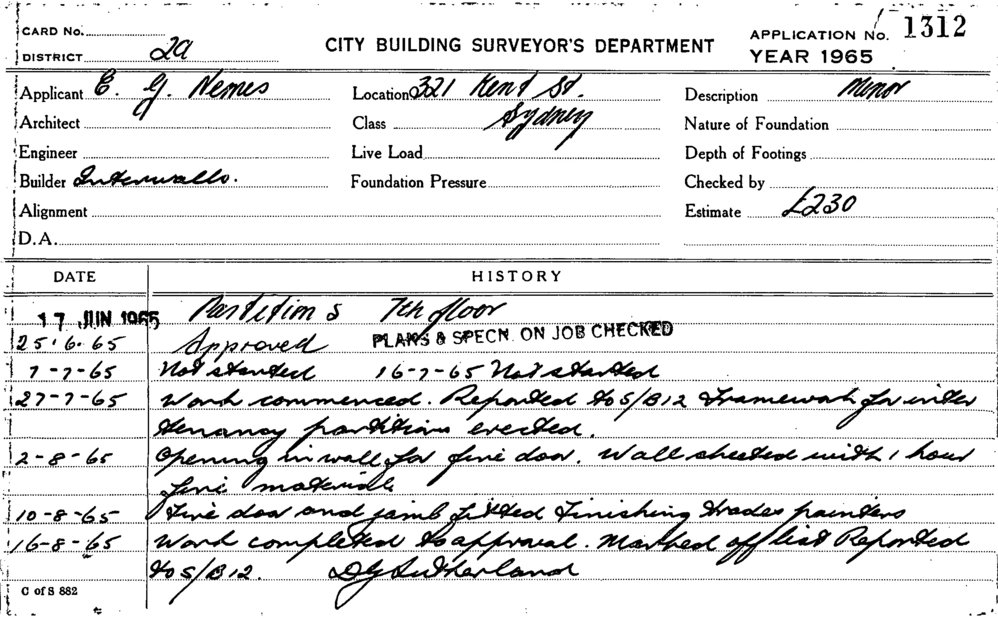 CARD No.
DISTRICT 2a
CITY BUILDING SURVEYOR'S DEPARTMENT
APPLICATION No. 1312
YEAR 1965
Applicant E. G. Nemes
Location 321 Kent St.
Description Minor
Architect
Class Sydney
Nature of Foundation
Engineer
Live Load
Depth of Footings
Builder Interwalls.
Foundation Pressure
Checked by
Alignment
Estimate £230
D.A.
DATE HISTORY
17 JUN 1965 Partitions 7th floor
25.6.65 Approved PLANS & SPECN. ON JOB CHECKED
7-7-65 Not started 16-7-65 Not started
27-7-65 Work commenced. Reported to S/B12 Framework for inter
tenancy partitions erected.
2-8-65 Opening in wall for fire door. Wall sheeted with 1 hour
fire materials
10-8-65 Fire door and jamb fitted Finishing trades painters
16-8-65 Work completed to approval. Marked off list Reported
to S/B12. D G Sutherland
C of S 882